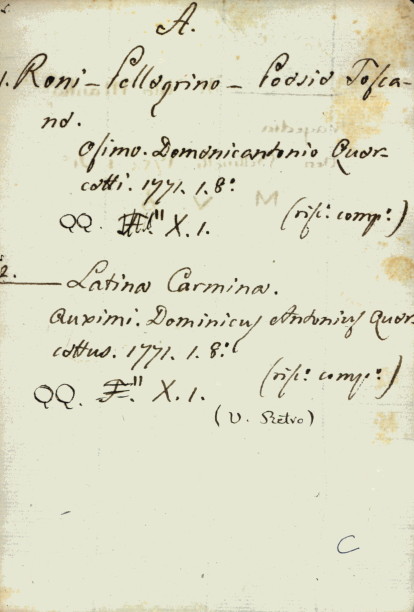 A.
1. Roni – Pellegrino – Poesie Tosca-
ne.
Osimo. Domenicantonio Quer-
cetti. 1771. 1. 8.º
(risᵗ. compᵉ.)
QQ. X. 1.
2. —— Latina Carmina.
Auximi. Dominicus Antonius Quer-
cettus. 1771. 1. 8.º
(risᵗ. compᵉ.)
QQ. F." X. 1.
(V. Retro)
C